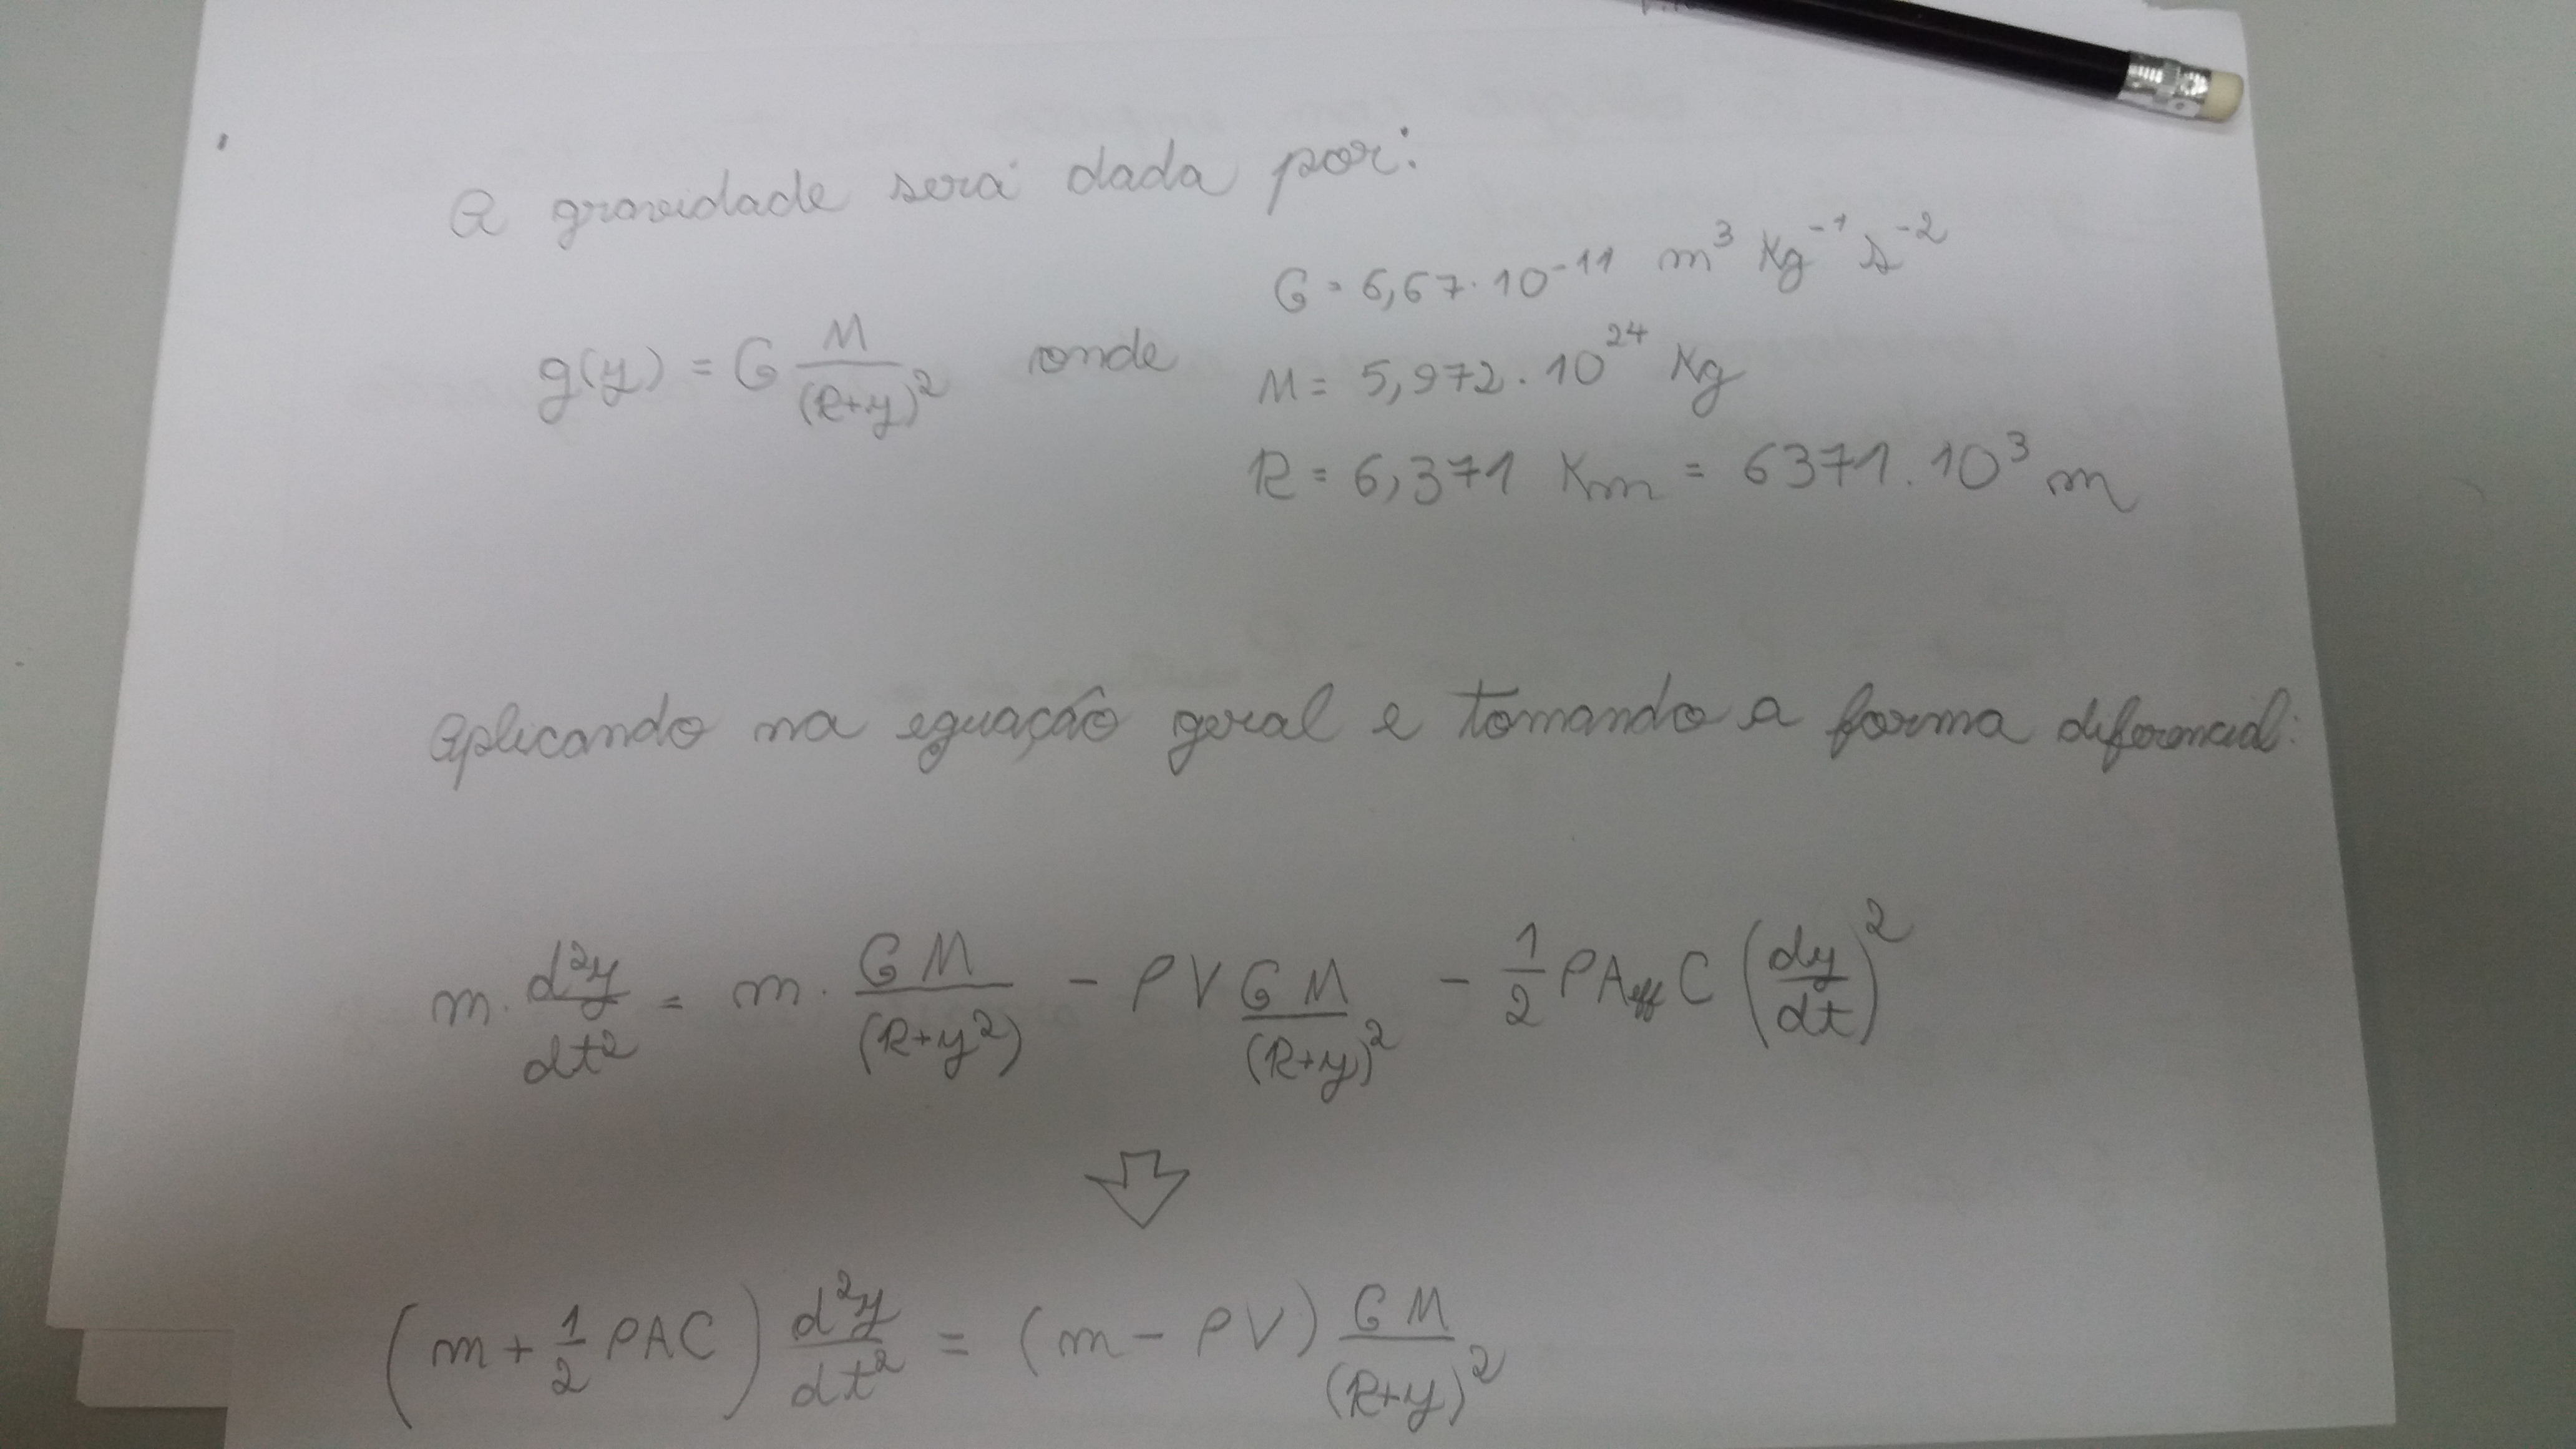 A gravidade será dada por:
G = 6,67·10⁻¹¹ m³ Kg⁻¹ s⁻²
g(y) = G M/(R+y)² onde
M = 5,972·10²⁴ Kg
R = 6,371 Km = 6371.10³ m
Aplicando na equação geral e tomando a forma diferencial:
m. d²y/dt² = m. GM/(R+y²) - ρV GM/(R+y)² - 1/2 ρA_eff C (dy/dt)²
(m + 1/2 ρAC) d²y/dt² = (m - ρV) GM/(R+y)²